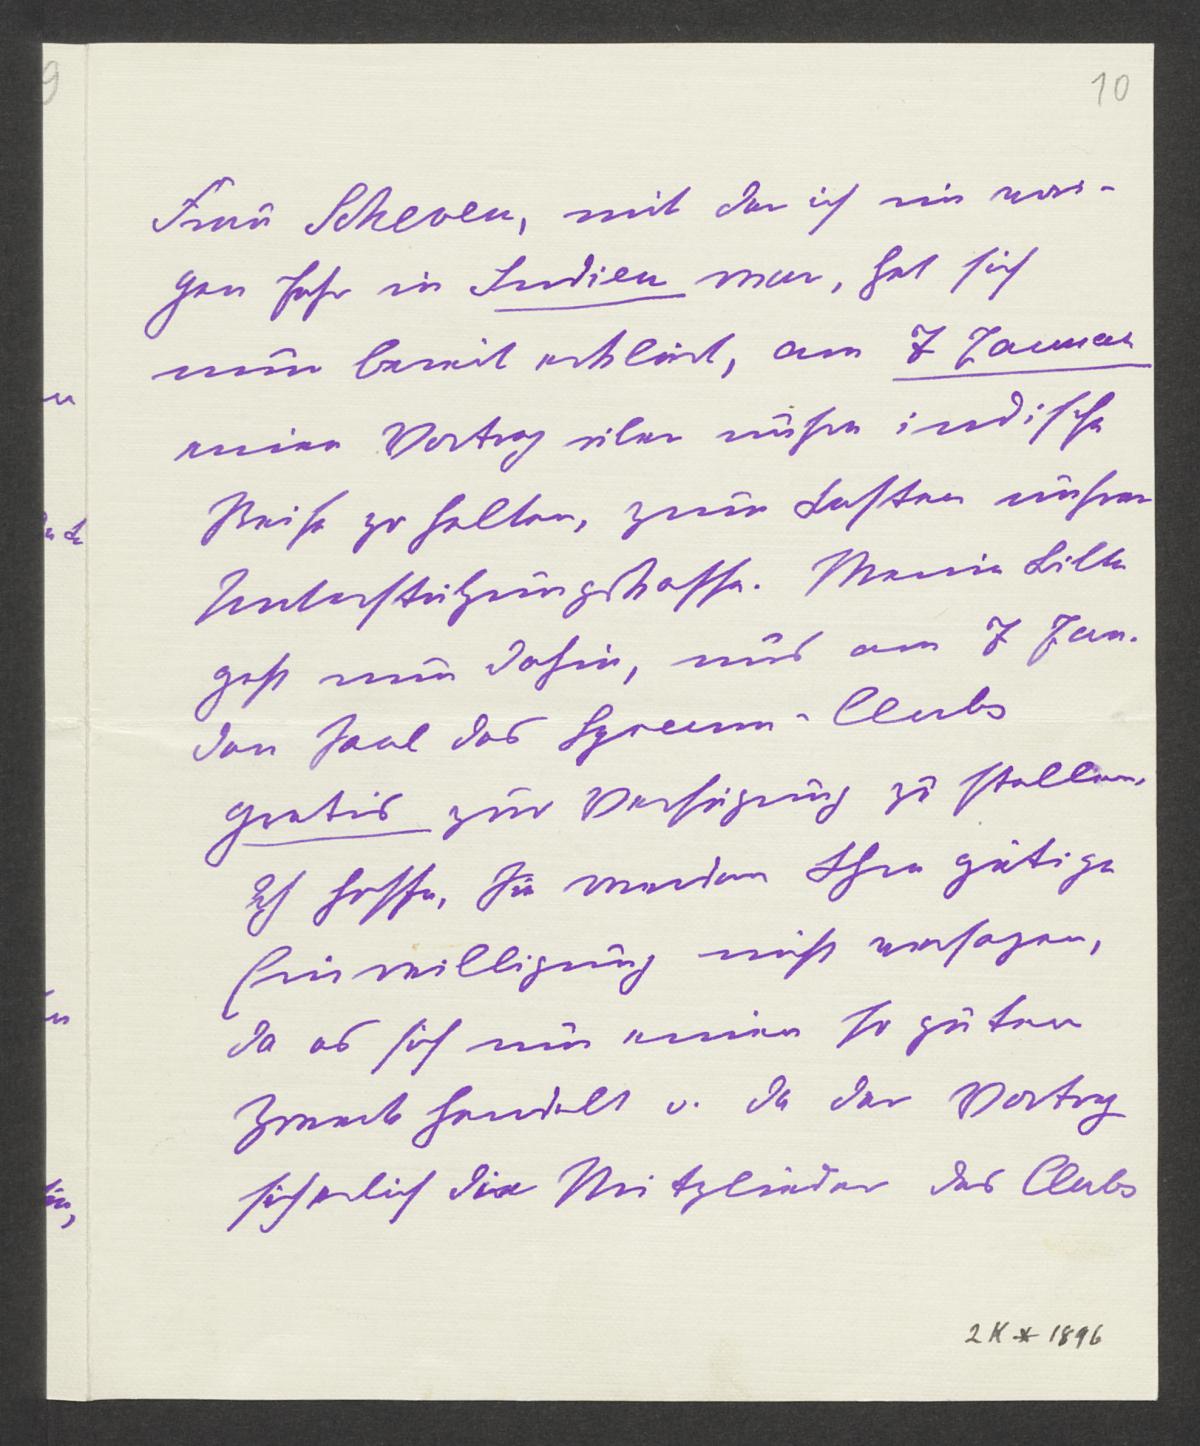 10
Frau Scheven, mit der ich im vori-
gen Jahr in Indien war, hat sich
nun bereit erklärt, am 7 Januar
einen Vortrag über unsre indische
Reise zu halten, zum Besten unsrer
Unterstützungskasse. Meine Bitte
geht nun dahin, uns am 7 Jan.
den Saal des Lyceum-Clubs
gratis zur Verfügung zu stellen.
Ich hoffe, Sie werden Ihre gütige
Einwilligung nicht versagen,
da es sich um einen so guten
Zweck handelt u. da der Vortrag
sicherlich die Mitglieder des Clubs
2 K * 1896